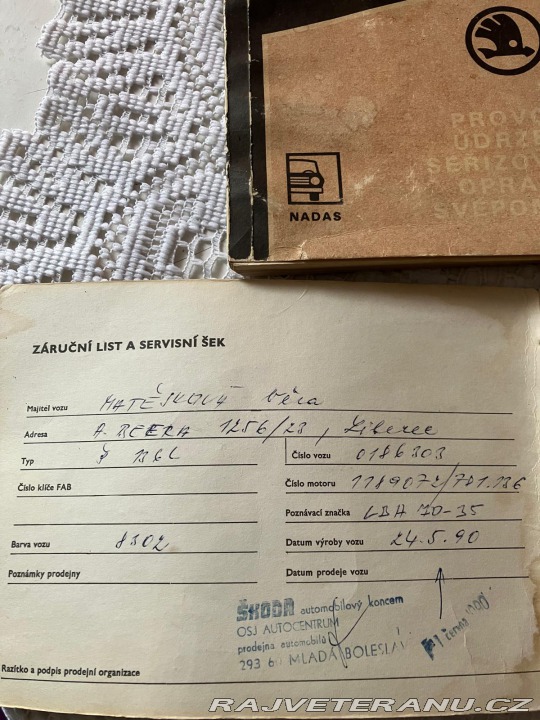 PROVO
ÚDRŽ
SEŘIZOV
NADAS
ZÁRUČNÍ LIST A SERVISNÍ ŠEK
Majitel vozu MATĚJKOVÁ Věra
Adresa 1256/23, Liberec
Typ Š 136L Číslo vozu 0186303
Číslo klíče FAB Číslo motoru
Poznávací značka LBH 70-35
Barva vozu 8302 Datum výroby vozu 24.5.90
Poznámky prodejny Datum prodeje vozu
ŠKODA automobilový koncern
OSJ AUTOCENTRUM
prodejna automobilů
293 60 MLADÁ BOLESLAV
Razítko a podpis prodejní organizace
RAJVETERANU.CZ